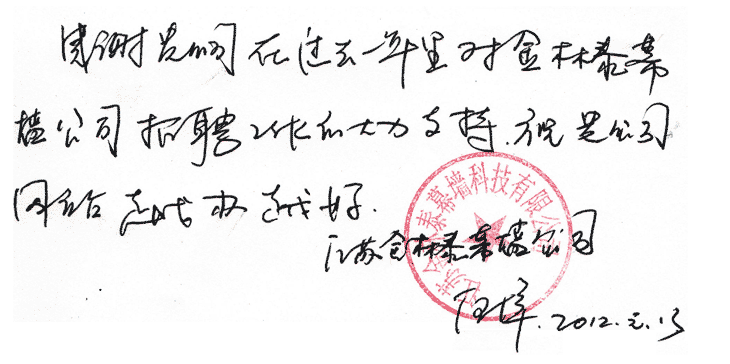 感谢贵公司在过去一年里对金林泰幕
墙公司招聘工作的大力支持.祝贵公司
网络越办越好.
江苏金林泰幕墙公司
2012.元.13
泰幕墙科技有限公司